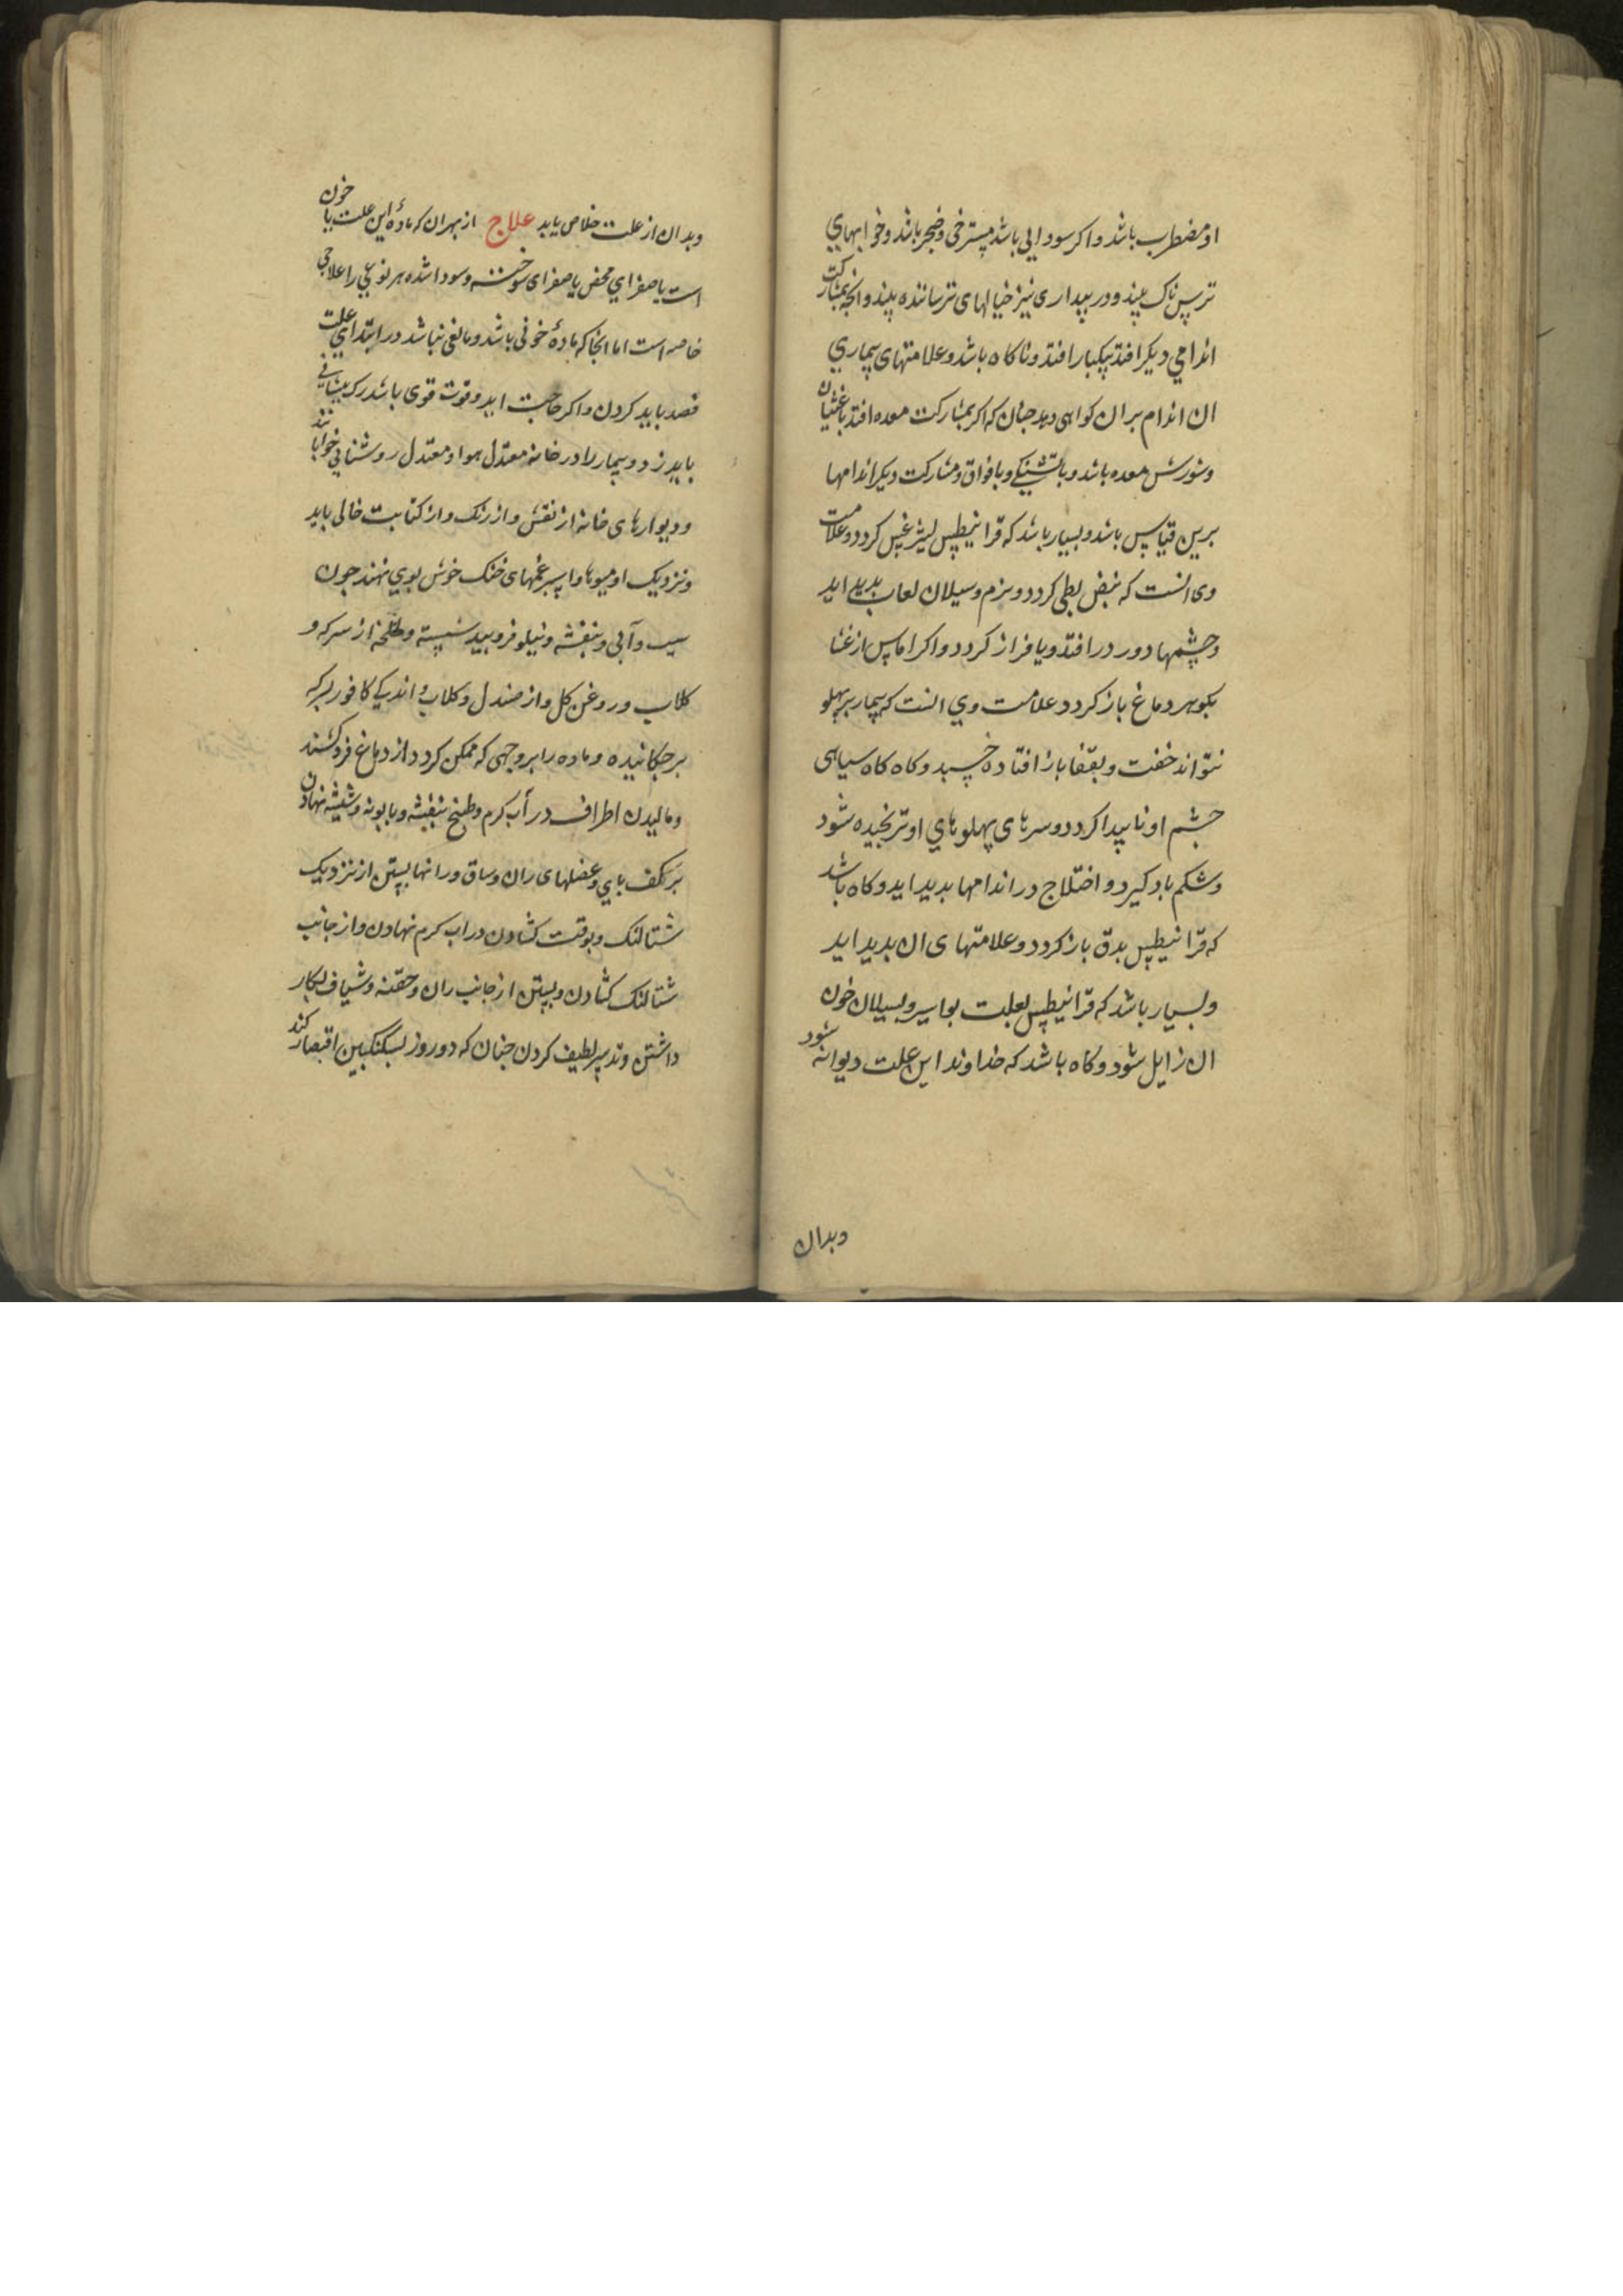 او مضطرب باشد و اکر سودایی باشد مسترخی و ضجر باشد و خوابهای
ترس ناک بیند و در بیداری نیز خیالهای ترساننده بیند و انچه بمشارکت
اندامی دیکر افتد بیکبار افتد و ناکاه باشد و علامتهای بیماری
ان اندام بر ان کواهی دهد جنان که اکر بمشارکت معده افتد با غثیان
و سوزش معده باشد و با تشنکی و با فواق و مشارکت دیکر اندامها
برین قیاس باشد و بسیار باشد که قرانیطس لیثرغس کردد و علامت
وی انست که نبض بطی کردد و نرم و سیلان لعاب بدید اید
و چشمها دور در افتد و یا فراز کردد و اکر اماس از غشا
بکوهر دماغ باز کردد علامت وی انست که بیمار بر پهلو
نتواند خفت و بقفا باز افتاده خسبد و کاه کاه سیاهی
چشم او نابیدا کردد و سرهای پهلوهای او ترنجیده شود
و شکم باد کیرد و اختلاج در اندامها بدید اید و کاه باشد
که قرانیطس بدق باز کردد و علامتهای ان بدید اید
و بسیار باشد که قرانیطس بعلت بواسیر و بسیلان خون
ان زایل شود و کاه باشد که خداوند این علت دیوانه شود
وبدان
وبدان از علت خلاص یابد علاج از بهر ان که ماده این علت یا خون
است یا صفرای محض یا صفرای سوخته و سودا شده هر نوعی را علاجی
خاصه است اما انجا که ماده خونی باشد و مانعی نباشد در ابتدای علت
فصد باید کردن و اکر حاجت اید و قوت قوی باشد رک پیشانی
باید زد و بیمار را در خانه معتدل هوا و معتدل روشنایی خوابانند
و دیوارهای خانه از نقش و از رنک و از کتابت خالی باید
و نزدیک او میوها و اسپرغمهای خنک خوش بوی نهند جون
سیب و آبی و بنفشه و نیلوفر و بید شسته و لخلخه از سرکه و
کلاب و روغن کل و از صندل و کلاب و اندکی کافور
برجکانیده و ماده را بر وجهی که ممکن کردد از دماغ فرو کشند
و مالیدن اطراف در آب کرم و طبیخ بنفشه و بابونه و شیشه نهادن
بر کف پای و عضلهای ران و ساق و رانها بستن از نزدیک
شتالنک و بوقت کشادن در اب کرم نهادن و از جانب
شتالنک کشادن و بستن از جانب ران و حقنه و شیاف بکار
داشتن و تدبیر لطیف کردن جنان که دو روز بسکنکبین اقتصار کند